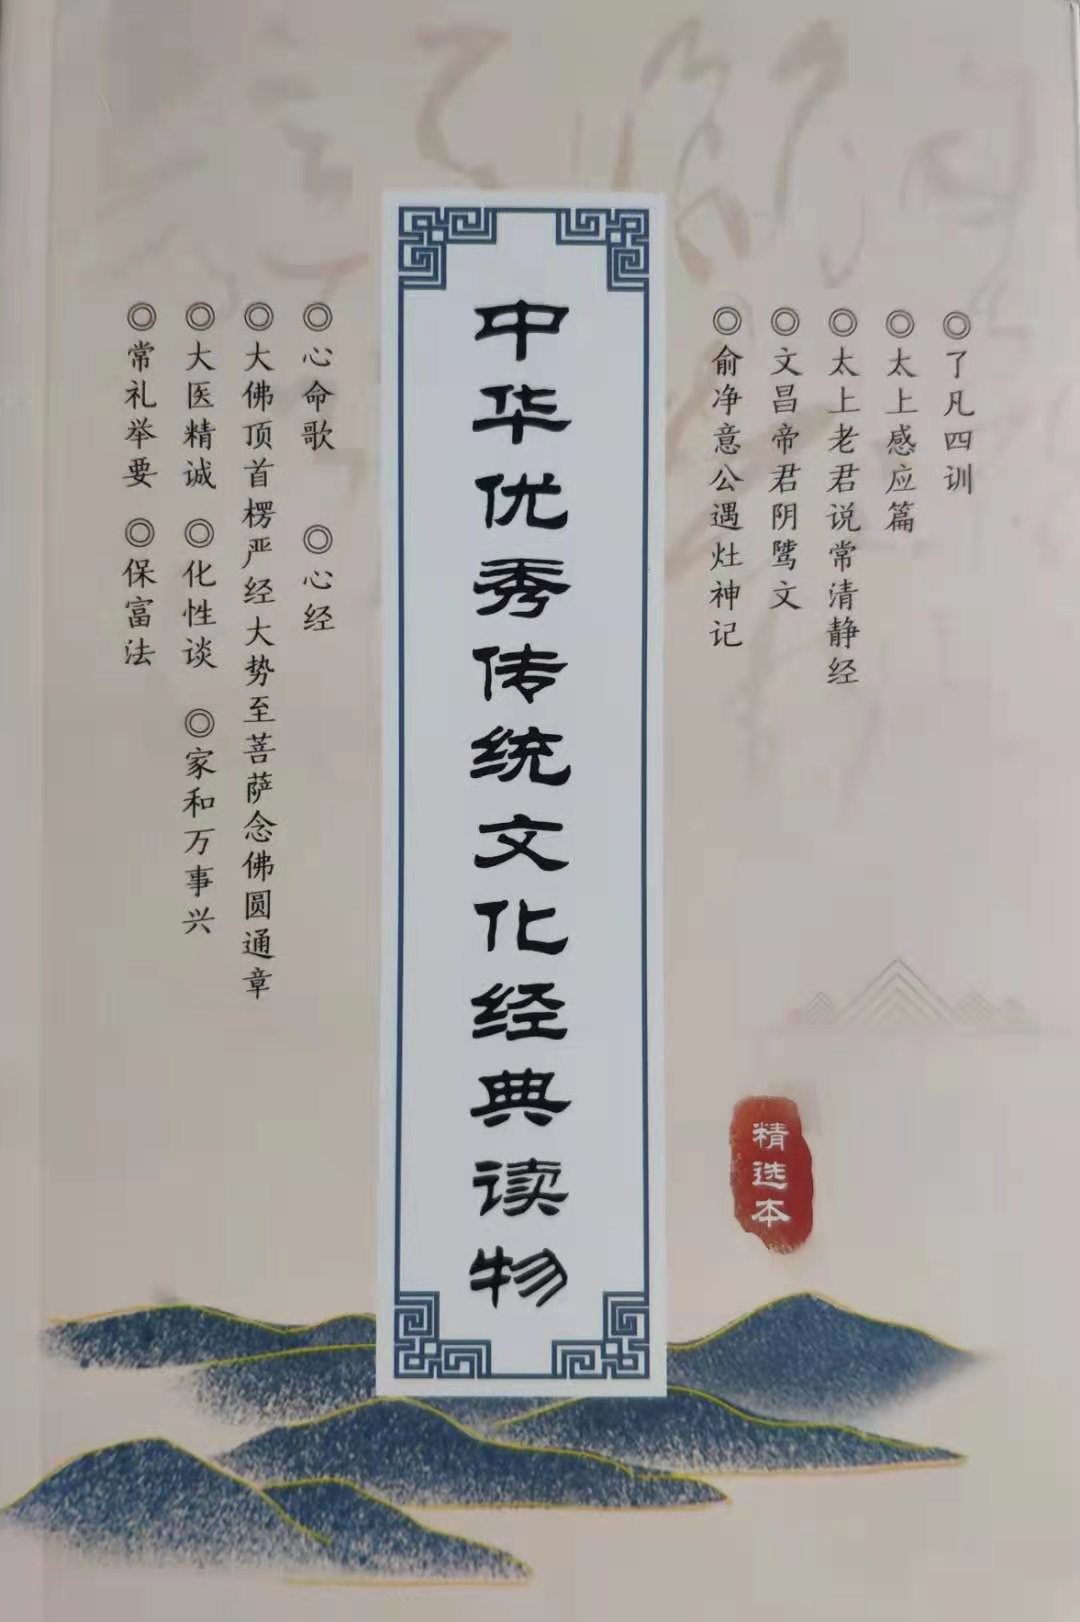 ◎了凡四训
◎太上感应篇
◎太上老君说常清静经
◎文昌帝君阴骘文
◎俞净意公遇灶神记
中华优秀传统文化经典读物
◎心命歌 ◎心经
◎大佛顶首楞严经大势至菩萨念佛圆通章
◎大医精诚 ◎化性谈 ◎家和万事兴
◎常礼举要 ◎保富法
精选本